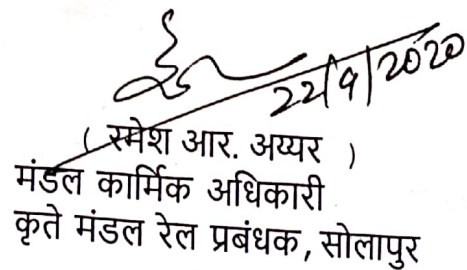 22/9/2020
( रमेश आर. अय्यर )
मंडल कार्मिक अधिकारी
कृते मंडल रेल प्रबंधक, सोलापुर